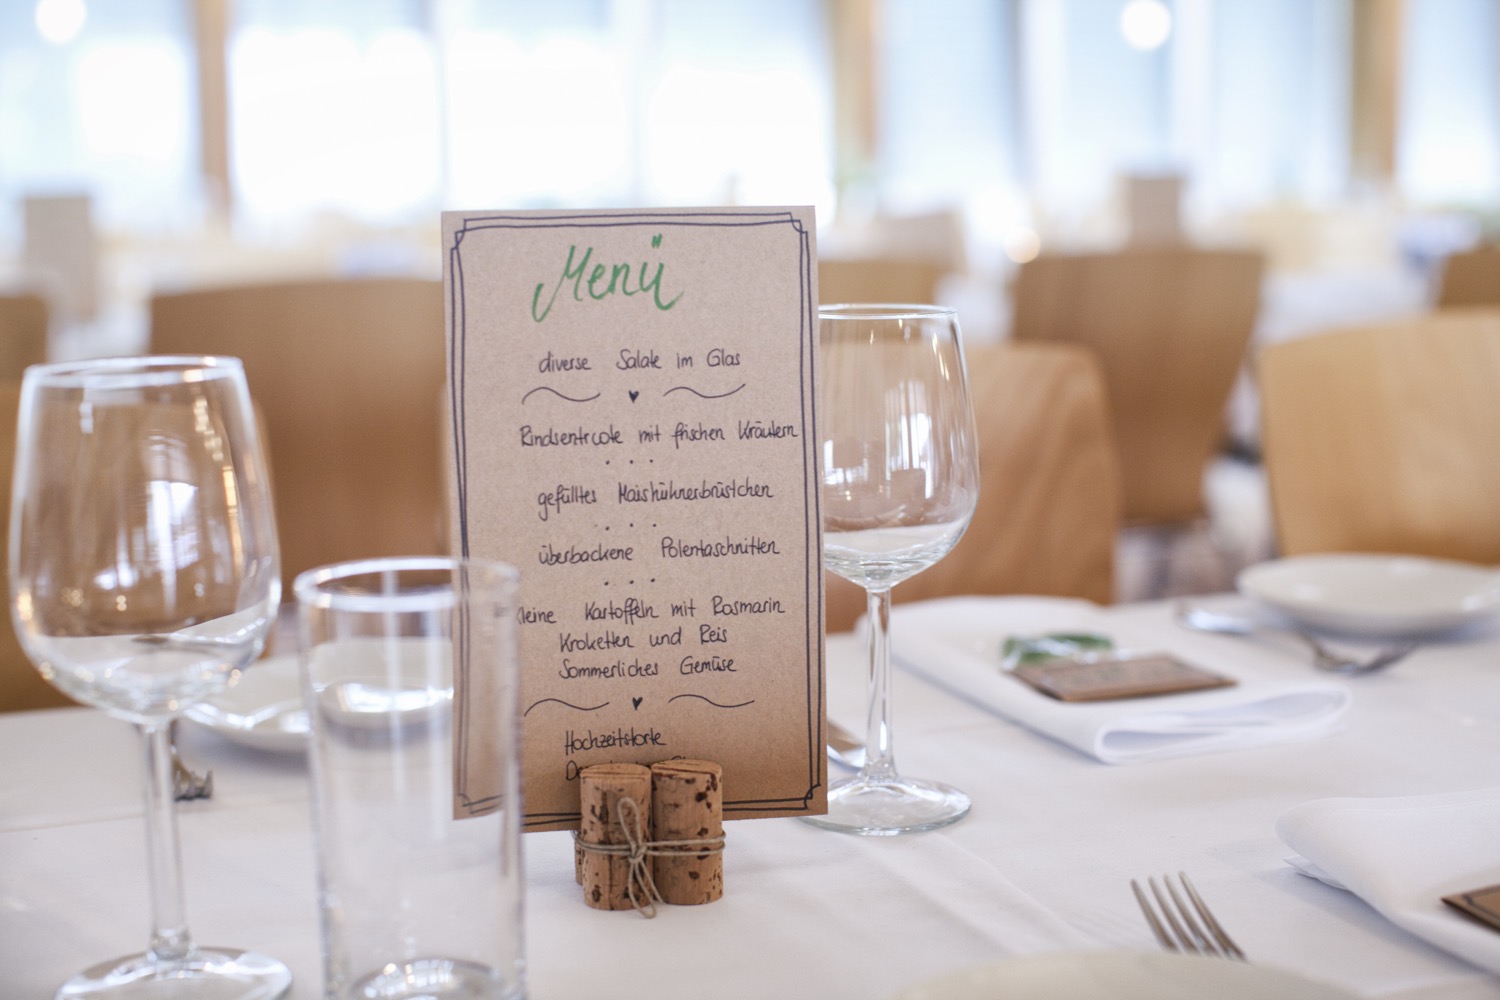 Menü
diverse Salate im Glas
Rindsentrcote mit frischen Kräutern
gefülltes Maishühnerbrüstchen
überbackene Polentaschnitten
kleine Kartoffeln mit Rosmarin
Kroketten und Reis
Sommerliches Gemüse
Hochzeitstorte